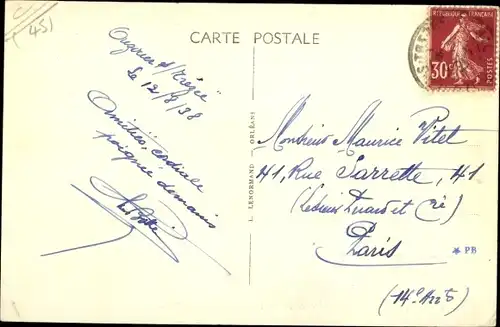 (45)
CARTE POSTALE
REPUBLIQUE FRANÇAISE
30c
POSTES
Ouzouer s/ Trézée
le 12/8/38
Amitiés, cordiale
poignée de mains
L. LENORMAND - ORLÉANS
Monsieur Maurice Vitel
41, Rue Sarrette, 41
et Cie)
Paris
* PB
(14e Arrt)